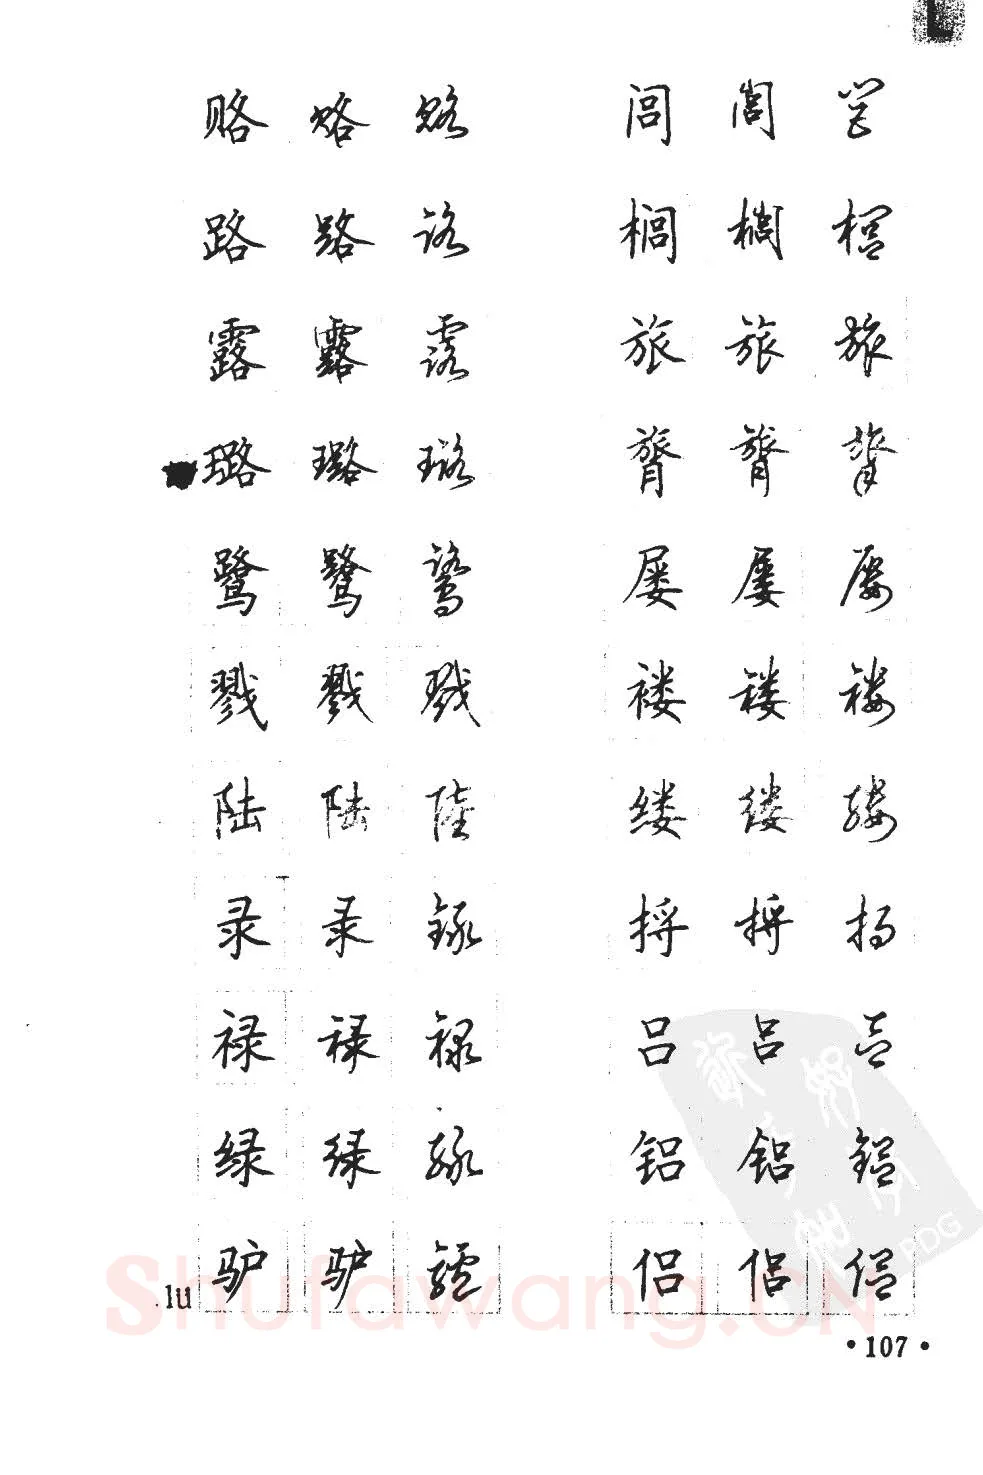 L
赂 赂 赂 闾 闾 闾
路 路 路 榈 榈 榈
露 露 露 旅 旅 旅
璐 璐 璐 膂 膂 膂
鹭 鹭 鹭 屡 屡 屡
戮 戮 戮 褛 褛 褛
陆 陆 陸 缕 缕 缕
录 录 録 捋 捋 捋
禄 禄 禄 吕 吕 吕
绿 绿 绿 铝 铝 铝
lu 驴 驴 驢 侣 侣 侣
Shufawang.CN
PDG
·107·